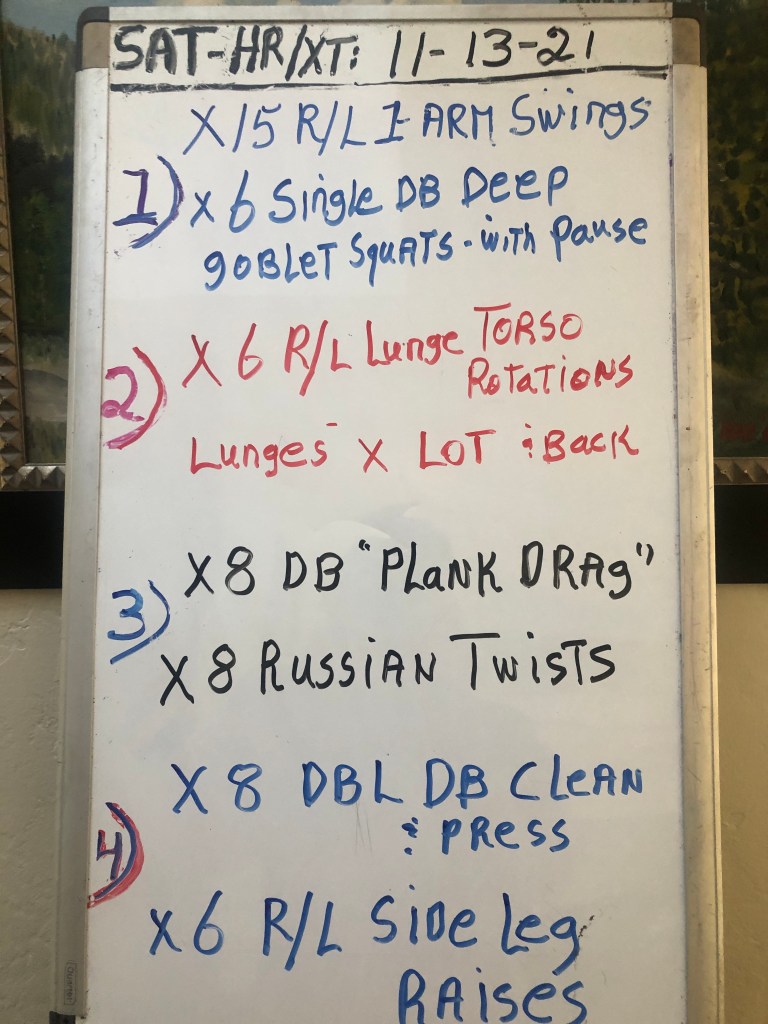 SAT-HR/XT: 11-13-21
X15 R/L 1-ARM Swings
1) X 6 Single DB DEEP
goBLET SquATS - with Pause
2) X 6 R/L Lunge TORSO
RoTATIONS
Lunges X LOT & BACK
3) X8 DB "PLANK DRAg"
X 8 RUSSIAN TWISTS
4) X 8 DBL DB CLEAN
& PRESS
X6 R/L SIDE Leg
RAISES